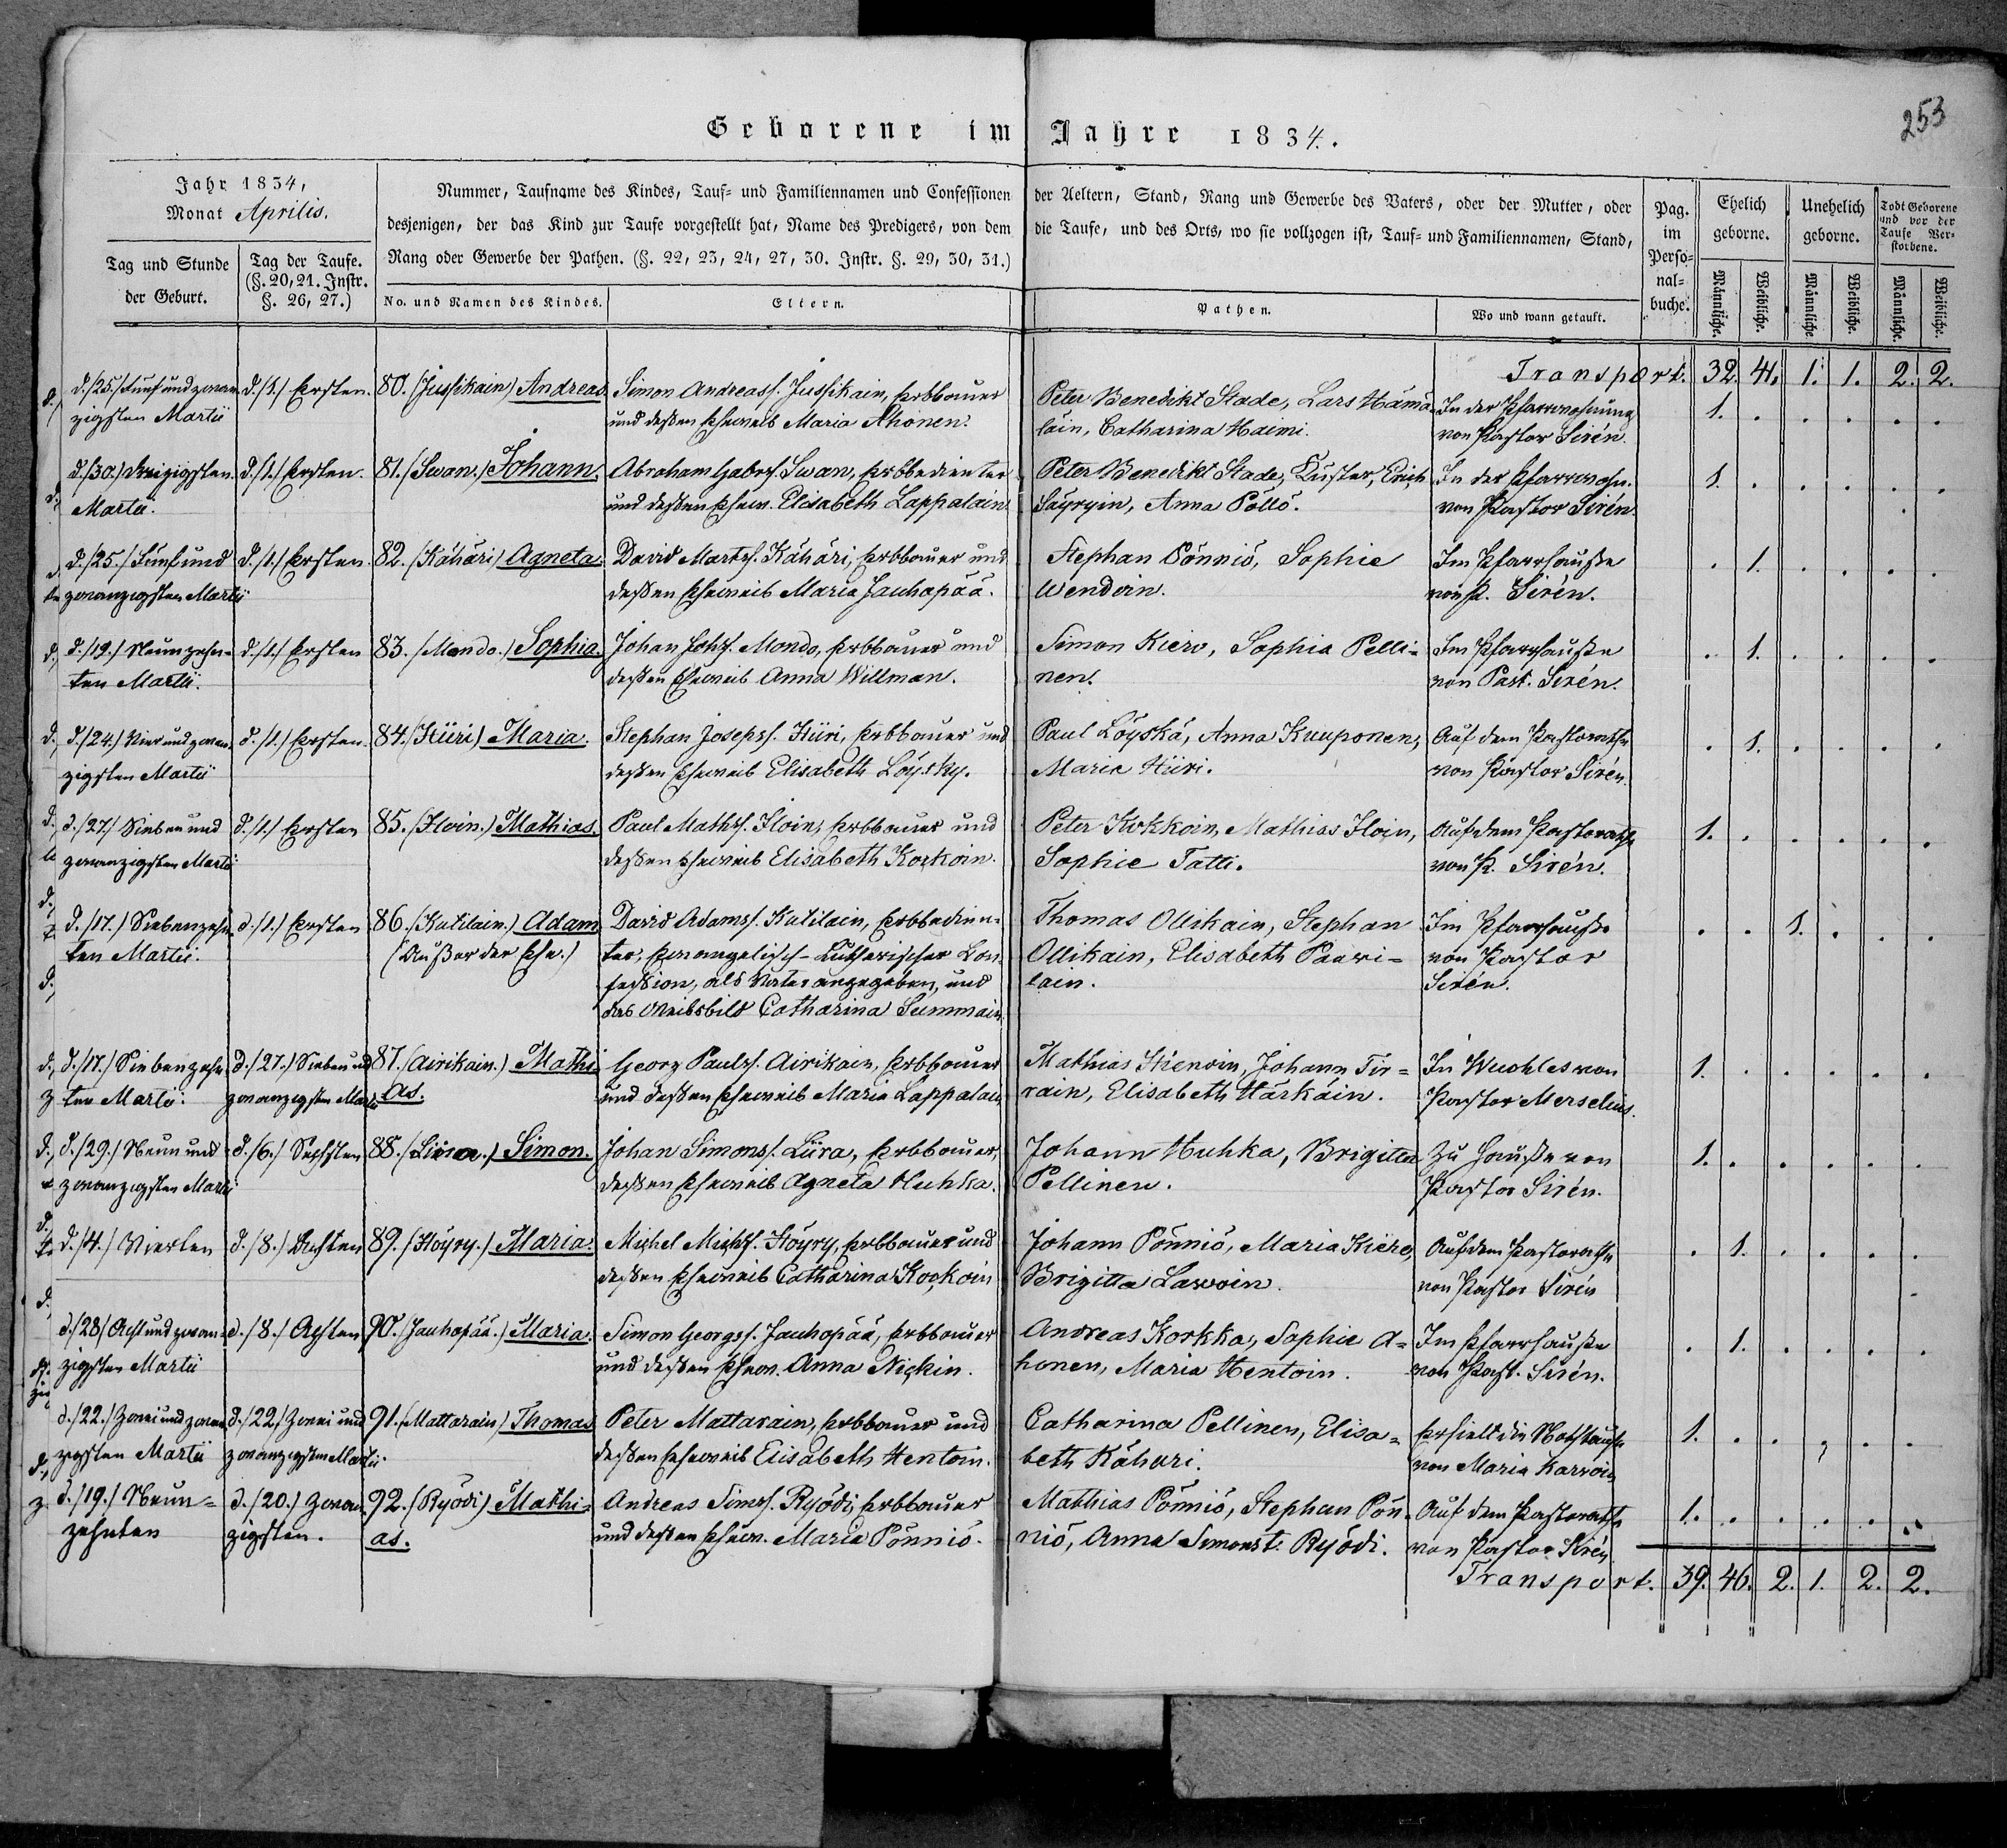 253
Geborene im Jahre 1834.
Jahr 1834,
Monat Aprilis.
Tag und Stunde
der Geburt.
Tag der Taufe.
(§. 20, 21. Instr.
§. 26, 27.)
Nummer, Taufname des Kindes, Tauf- und Familiennamen und Confessionen der Aeltern, Stand, Rang und Gewerbe des Vaters, oder der Mutter, oder
desjenigen, der das Kind zur Taufe vorgestellt hat, Name des Predigers, von dem die Taufe, und des Orts, wo sie vollzogen ist, Tauf- und Familiennamen, Stand,
Rang oder Gewerbe der Pathen. (§. 22, 23, 24, 27, 30. Instr. §. 29, 30, 31.)
No. und Namen des Kindes.
Eltern.
Pathen.
Wo und wann getauft.
Pag.
im
Perso-
nal-
buche.
Ehelich
geborne.
Unehelich
geborne.
Todt Geborene
und vor der
Taufe Ver-
storbene.
Männliche.
Weibliche.
Männliche
Weibliche.
Männliche.
Weibliche.
Transport. 32. 41. 1. 1. 2. 2.
d./25./ Fünf und zwan-
zigsten Martii
d./1./ Ersten.
80. (Jussikain) Andreas.
Simon Andreass. Jussikain, Erbbauer
und deßen Eheweib Maria Ahonen.
Peter Benedikt Stade, Lars Hämä-
läin, Catharina Haimi.
In der Pfarrwohnung
von Pastor Sirén.
1. . . . . .
d./30./ Dreizigsten
Martii.
d./1./ Ersten.
81. (Swan.) Johann.
Abraham Gabrs. Swan, Erbbedienter
und deßen Ehew. Elisabeth Lappalain.
Peter Benedikt Stade, Küster, Erich
Säyryin, Anna Pöllö.
In der Pfarrwohn.
von Pastor Sirén.
1. . . . . .
d./25./ Fünf und
zwanzigsten Martii
d./1./ Ersten.
82. (Kähäri) Agneta.
David Marts. Kähäri, Erbbauer und
deßen Eheweib Maria Jauhopää.
Stephan Pönniö, Sophie
Wendoin.
Im Pfarrhauße
von P. Sirén.
. 1. . . . .
d./19./ Neunzehn-
ten Martii.
d./1./ Ersten
83. (Mondo.) Sophia.
Johan Johs. Mondo, Erbbauer und
deßen Eheweib Anna Willman.
Simon Kierv, Sophia Pelli-
nen.
Im Pfarrhauße
von Past. Sirén.
. 1. . . . .
d./24./ Vier und zwan-
zigsten Martii
d./1./ Ersten.
84. (Hüri) Maria.
Stephan Josephs. Hüri, Erbbauer und
deßen Eheweib Elisabeth Löysky.
Paul Löyskä, Anna Kuuponen,
Maria Hüri.
Auf dem Pastorathe
von Pastor Sirén.
. 1. . . . .
d./27./ Sieben und
zwanzigsten Martii
d./1./ Ersten
85. (Iloin.) Mathias.
Paul Maths. Iloin, Erbbauer und
deßen Eheweib Elisabeth Korkoin.
Peter Kokkoin, Mathias Iloin,
Sophie Tatti.
Auf dem Pastorathe
von P. Sirén.
1. . . . . .
d./17./ Siebenzehn-
ten Martii.
d./1./ Ersten
86. (Kutilain.) Adam
(Außer der Ehe.)
David Adams. Kutilain, Erbbedien-
ter, Evangelisch-Lutherischer Con-
fession, als Vater angegeben, und
das Weibsbild Catharina Summain.
Thomas Ollikain, Stephan
Ollikain, Elisabeth Paawi-
lain.
Im Pfarrhauße
von Pastor
Sirén.
. . 1. . . .
d./17./ Siebenzehn-
ten Martii.
d./27./ Sieben und
zwanzigsten Martii
87. (Airikain.) Mathi-
as.
Georg Pauls. Airikain, Erbbauer
und deßen Eheweib Maria Lappalain.
Mathias Hienoin, Johann Tir-
rain, Elisabeth Härkäin.
In Wuohles von
Pastor Merselius.
1. . . . . .
d./29./ Neun und
zwanzigsten Martii
d./6./ Sechsten
88. (Liira.) Simon.
Johan Simons. Liira, Erbbauer,
deßen Eheweib Agneta Huhka.
Johann Huhka, Brigitta
Pellinen.
Zu Hauße von
Pastor Sirén.
1. . . . . .
d./4./ Vierten
d./8./ Achten
89. (Höyry.) Maria.
Michel Michs. Höyry, Erbbauer und
deßen Eheweib Catharina Kockoin
Johann Pönniö, Maria Kiero,
Brigitta Lawoin.
Auf dem Pastorathe
von Pastor Sirén
. 1. . . . .
d./28/ Acht und zwan-
zigsten Martii
d./8./ Achten
90. (Jauhopää.) Maria.
Simon Georgs. Jauhopää, Erbbauer
und deßen Ehew. Anna Nickin.
Andreas Korkka, Sophie A-
honen, Maria Hentoin.
Im Pfarrhauße
von Past. Sirén.
. 1. . . . .
d./22./ Zwei und zwan-
zigsten Martii
d./22/ Zwei und
zwanzigsten Martii.
91. (Mattarain) Thomas
Peter Mattarain, Erbbauer und
deßen Eheweib Elisabeth Hentoin.
Catharina Pellinen, Elisa-
beth Kähäri.
Erhielt die Nothtaufe
von Maria Karvoin
1. . . . . .
d./19./ Neun-
zehnten
d./20./ Zwan-
zigsten.
92. (Ryödi) Mathi-
as.
Andreas Sims. Ryödi, Erbbauer
und deßen Ehew. Maria Pönniö.
Matthias Pönniö, Stephan Pön-
niö, Anna Simonst. Ryödi.
Auf dem Pastorathe
von Pastor Sirén
1. . . . . .
Transport. 39. 46. 2. 1. 2. 2.